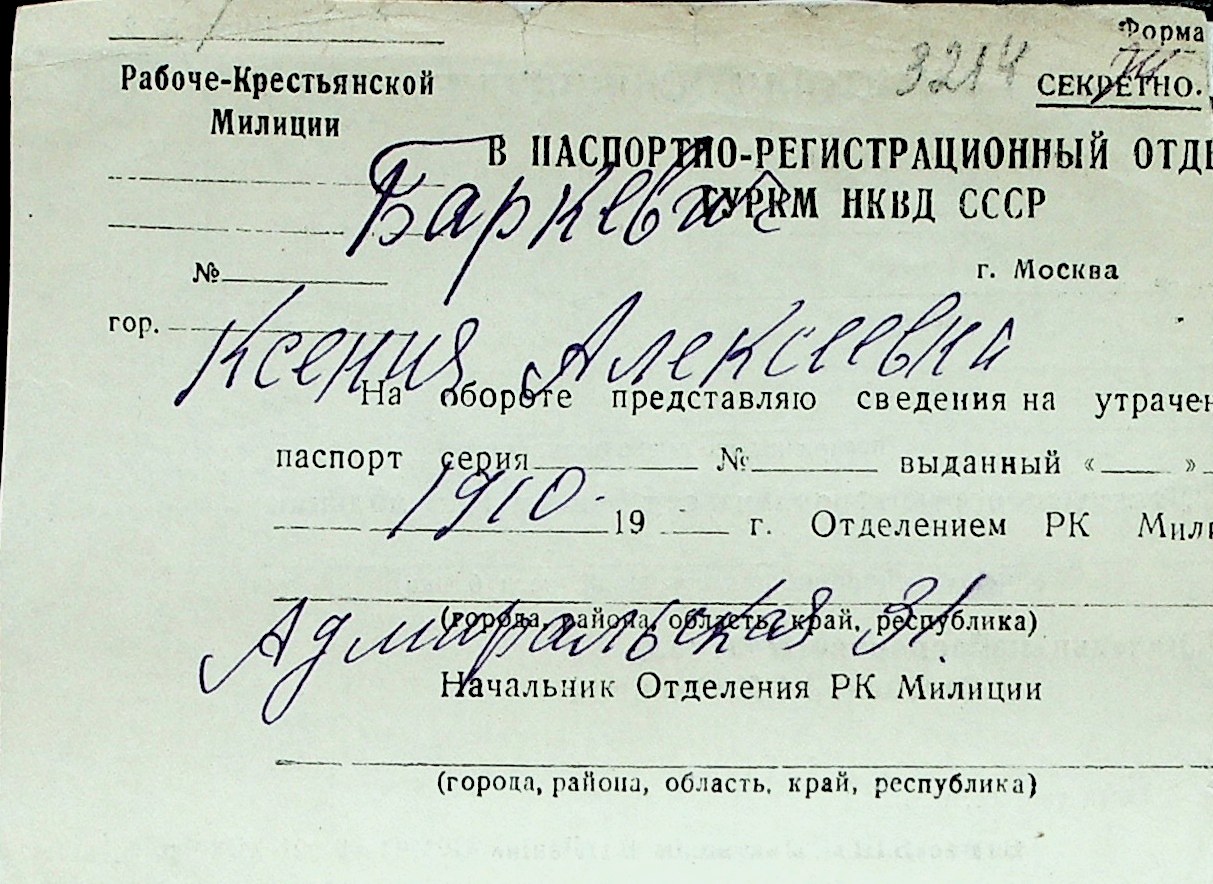 Форма
3214
СЕКРЕТНО.
Рабоче-Крестьянской
Милиции
В ПАСПОРТНО-РЕГИСТРАЦИОННЫЙ ОТДЕ
ГУРКМ НКВД СССР
Баркевич
№
г. Москва
гор.
Ксения Алексеевна
На обороте представляю сведения на утрачен
паспорт серия № выданный « »
1910.
19 г. Отделением РК Мили
(города, района, область, край, республика)
Адмиральская 31.
Начальник Отделения РК Милиции
(города, района, область, край, республика)